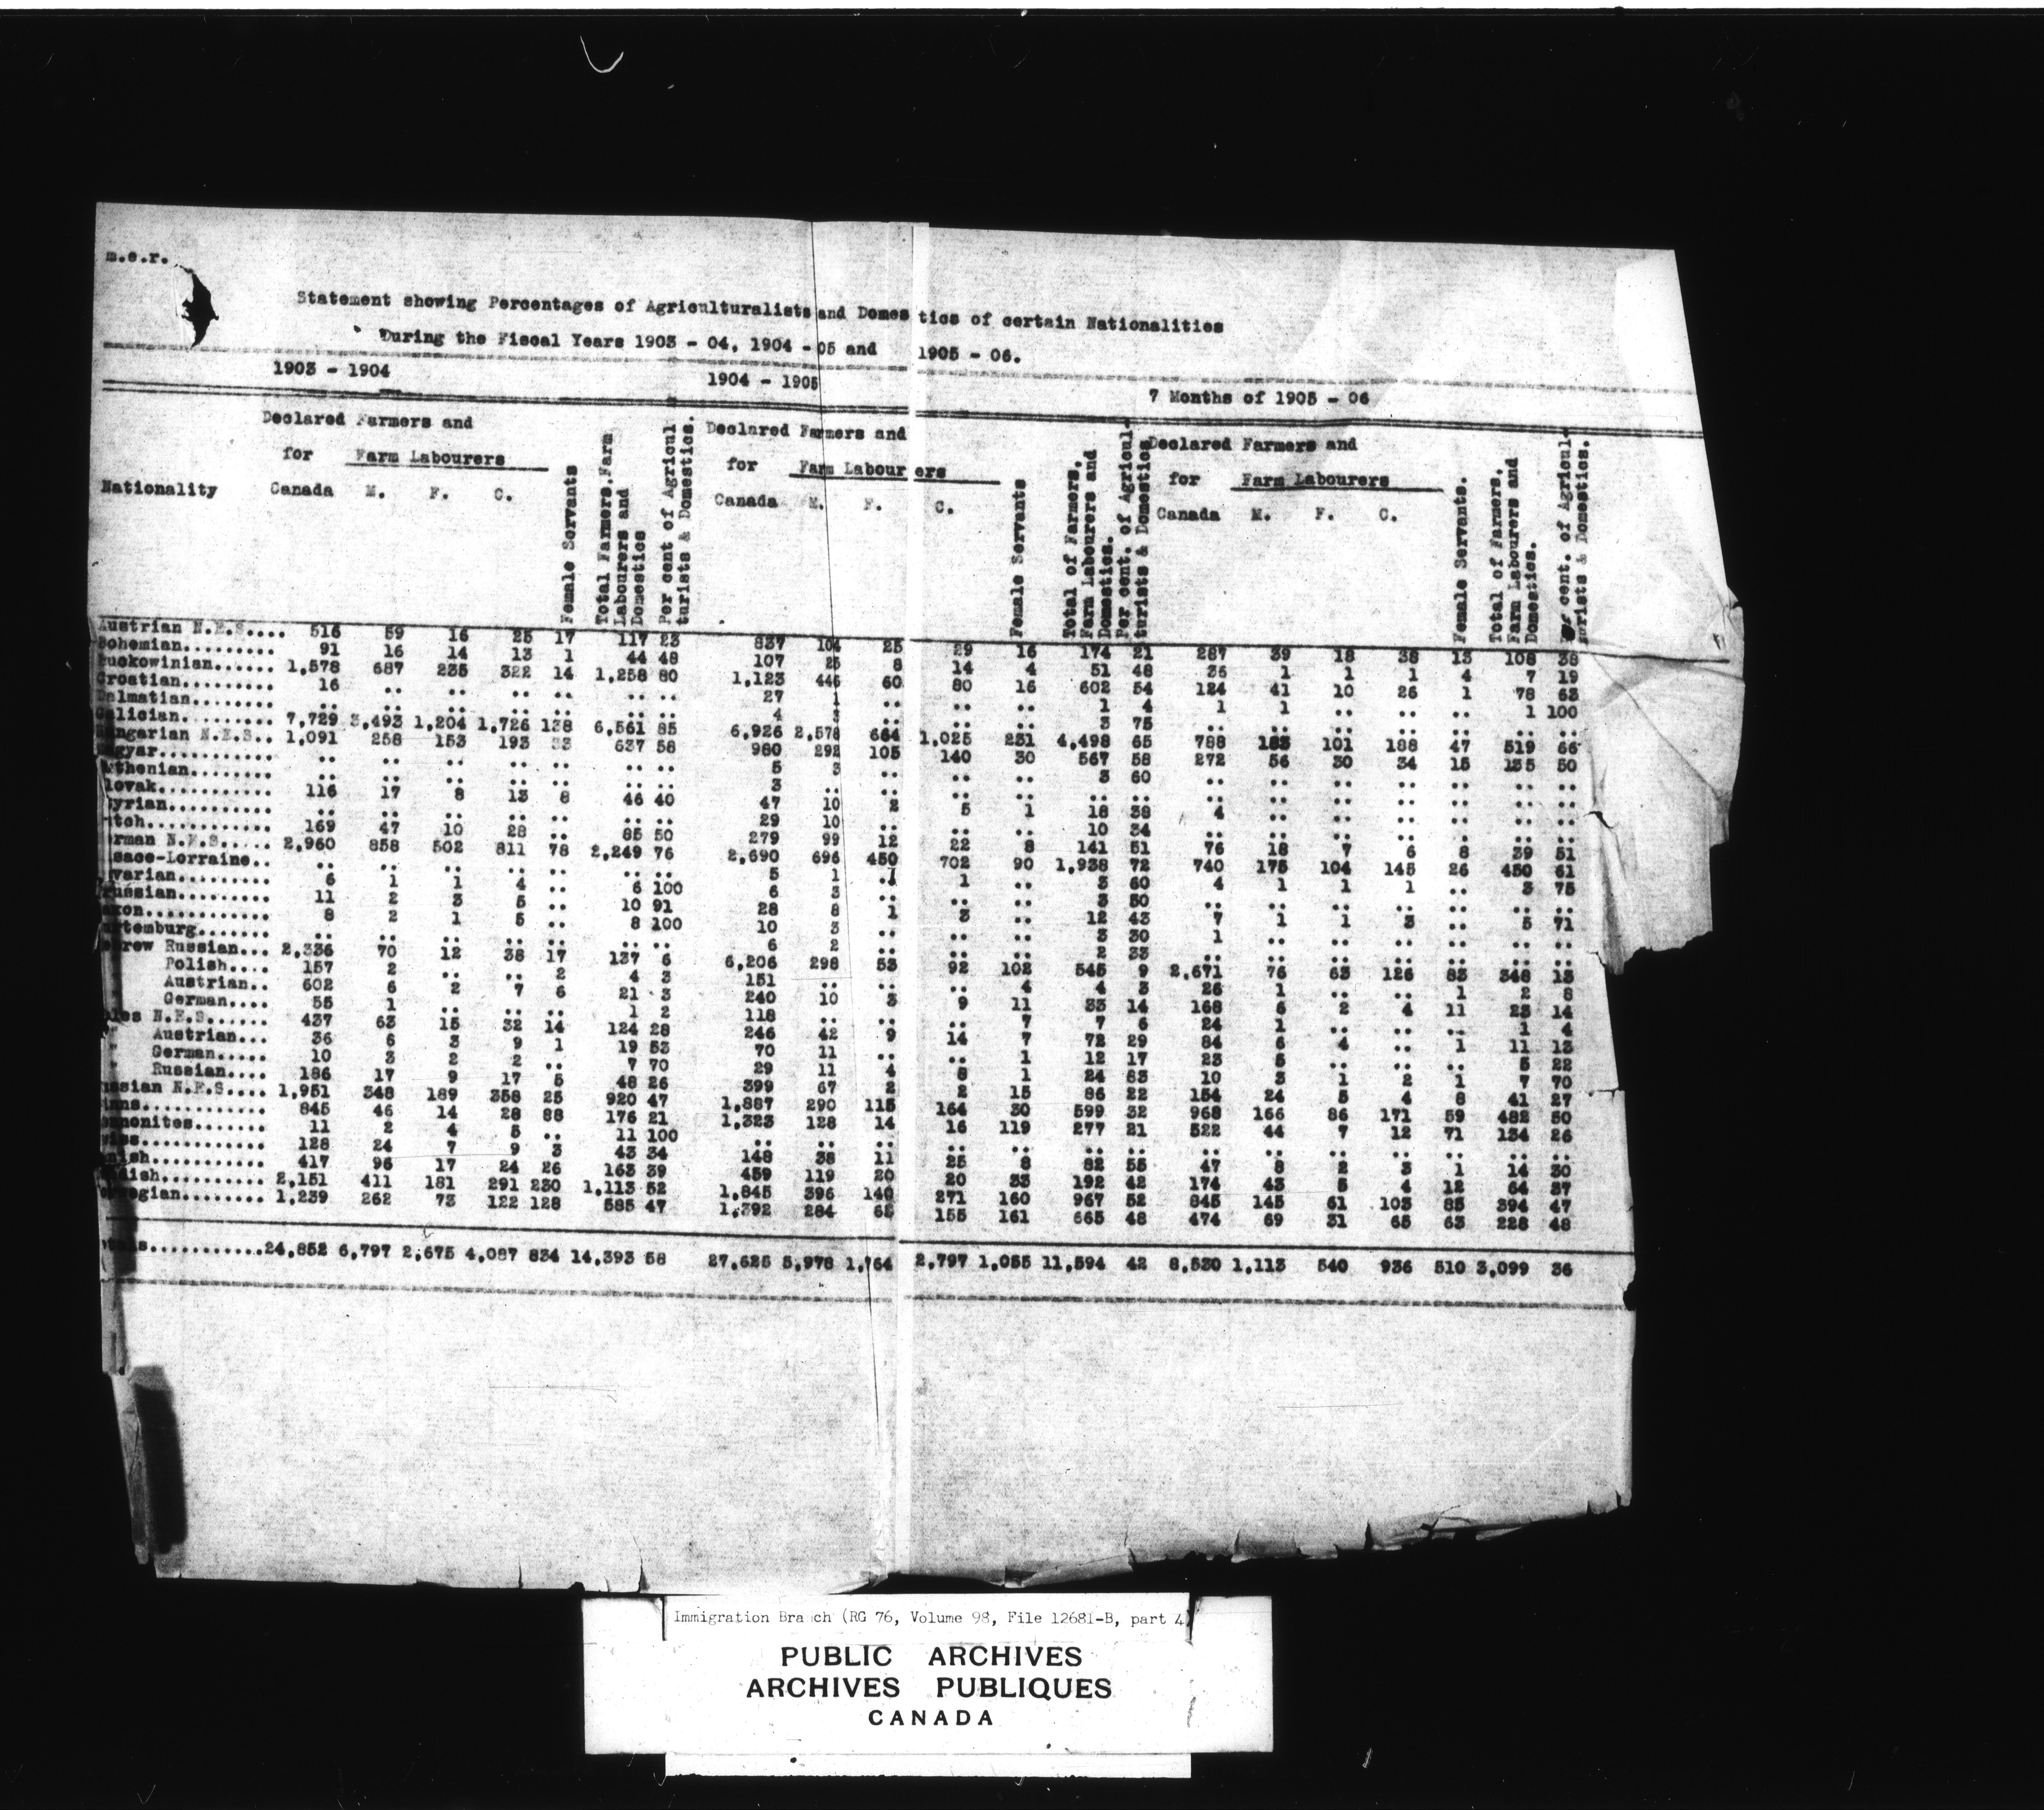 m.e.r.
Statement showing Percentages of Agriculturalists and Domestics of certain Nationalities
During the Fiscal Years 1903 - 04, 1904 - 05 and 1905 - 06.
1903 - 1904 1904 - 1905 7 Months of 1905 - 06
Declared Farmers and Declared Farmers and Declared Farmers and
for Farm Labourers for Farm Labourers for Farm Labourers
Nationality Canada M. F. C. Female Servants Total Farmers, Farm Labourers and Domestics Per cent of Agriculturists & Domestics. Canada M. F. C. Female Servants Total of Farmers, Farm Labourers and Domestics. Per cent. of Agriculturists & Domestics Canada M. F. C. Female Servants. Total of Farmers, Farm Labourers and Domestics. Per cent. of Agriculturists & Domestics.
Austrian N.E.S.... 516 59 16 25 17 117 23 837 104 25 29 16 174 21 287 39 18 38 13 108 38
Bohemian......... 91 16 14 13 1 44 48 107 25 8 14 4 51 48 36 1 1 1 4 7 19
Buckowinian...... 1,578 687 235 322 14 1,258 80 1,123 446 60 80 16 602 54 124 41 10 26 1 78 63
Croatian......... 16 .. .. .. .. .. .. 27 1 .. .. .. 1 4 1 1 .. .. .. 1 100
Dalmatian........ .. .. .. .. .. .. .. 4 3 .. .. .. 3 75 .. .. .. .. .. .. ..
Galician......... 7,729 3,493 1,204 1,726 138 6,561 85 6,926 2,578 664 1,025 231 4,498 65 788 183 101 188 47 519 66
Hungarian N.E.S.. 1,091 258 153 193 33 637 58 980 292 105 140 30 567 58 272 56 30 34 15 135 50
Magyar........... .. .. .. .. .. .. .. 5 3 .. .. .. 3 60 .. .. .. .. .. .. ..
thenian.......... .. .. .. .. .. .. .. 3 .. .. .. .. .. .. .. .. .. .. .. .. ..
lovak........... 116 17 8 13 8 46 40 47 10 2 5 1 18 38 4 .. .. .. .. .. ..
yrian.......... .. .. .. .. .. .. .. 29 10 .. .. .. 10 34 .. .. .. .. .. .. ..
tch............ 169 47 10 28 .. 85 50 279 99 12 22 8 141 51 76 18 7 6 8 39 51
erman N.E.S..... 2,960 858 502 811 78 2,249 76 2,690 696 450 702 90 1,938 72 740 175 104 145 26 450 61
sace-Lorraine.. .. .. .. .. .. .. .. 5 1 1 1 .. 3 60 4 1 1 1 .. 3 75
varian......... 6 1 1 4 .. 6 100 6 3 .. .. .. 3 50 .. .. .. .. .. .. ..
russian......... 11 2 3 5 .. 10 91 28 8 1 3 .. 12 43 7 1 1 3 .. 5 71
axon............ 8 2 1 5 .. 8 100 10 3 .. .. .. 3 30 1 .. .. .. .. .. ..
urtemburg....... .. .. .. .. .. .. .. 6 2 .. .. .. 2 33 .. .. .. .. .. .. ..
ebrew Russian... 2,336 70 12 38 17 137 6 6,206 298 53 92 102 545 9 2,671 76 63 126 83 348 13
Polish.... 157 2 .. .. 2 4 3 151 .. .. .. 4 4 3 26 1 .. .. 1 2 8
Austrian.. 602 6 2 7 6 21 3 240 10 3 9 11 33 14 168 6 2 4 11 23 14
German.... 55 1 .. .. .. 1 2 118 .. .. .. 7 7 6 24 1 .. .. .. 1 4
oles N.E.S...... 437 63 15 32 14 124 28 246 42 9 14 7 72 29 84 6 4 .. 1 11 13
" Austrian... 36 6 3 9 1 19 53 70 11 .. .. 1 12 17 23 5 .. .. .. 5 22
" German..... 10 3 2 2 .. 7 70 29 11 4 8 1 24 83 10 3 1 2 1 7 70
Russian.... 186 17 9 17 5 48 26 399 67 2 2 15 86 22 154 24 5 4 8 41 27
ussian N.E.S.... 1,951 348 189 358 25 920 47 1,887 290 115 164 30 599 32 968 166 86 171 59 482 50
inns............ 845 46 14 28 88 176 21 1,323 128 14 16 119 277 21 522 44 7 12 71 134 26
ennonites....... 11 2 4 5 .. 11 100 .. .. .. .. .. .. .. .. .. .. .. .. .. ..
wiss............ 128 24 7 9 3 43 34 148 38 11 25 8 82 55 47 8 2 3 1 14 30
nish........... 417 96 17 24 26 163 39 459 119 20 20 33 192 42 174 43 5 4 12 64 37
edish.......... 2,151 411 181 291 230 1,113 52 1,845 396 140 271 160 967 52 845 145 61 103 85 394 47
orwegian........ 1,239 262 73 122 128 585 47 1,392 284 65 155 161 665 48 474 69 31 65 63 228 48
otals............24,852 6,797 2,675 4,087 834 14,393 58 27,625 5,978 1,764 2,797 1,055 11,594 42 8,530 1,113 540 936 510 3,099 36
Immigration Branch (RG 76, Volume 98, File 12681-B, part 4)
PUBLIC ARCHIVES
ARCHIVES PUBLIQUES
CANADA